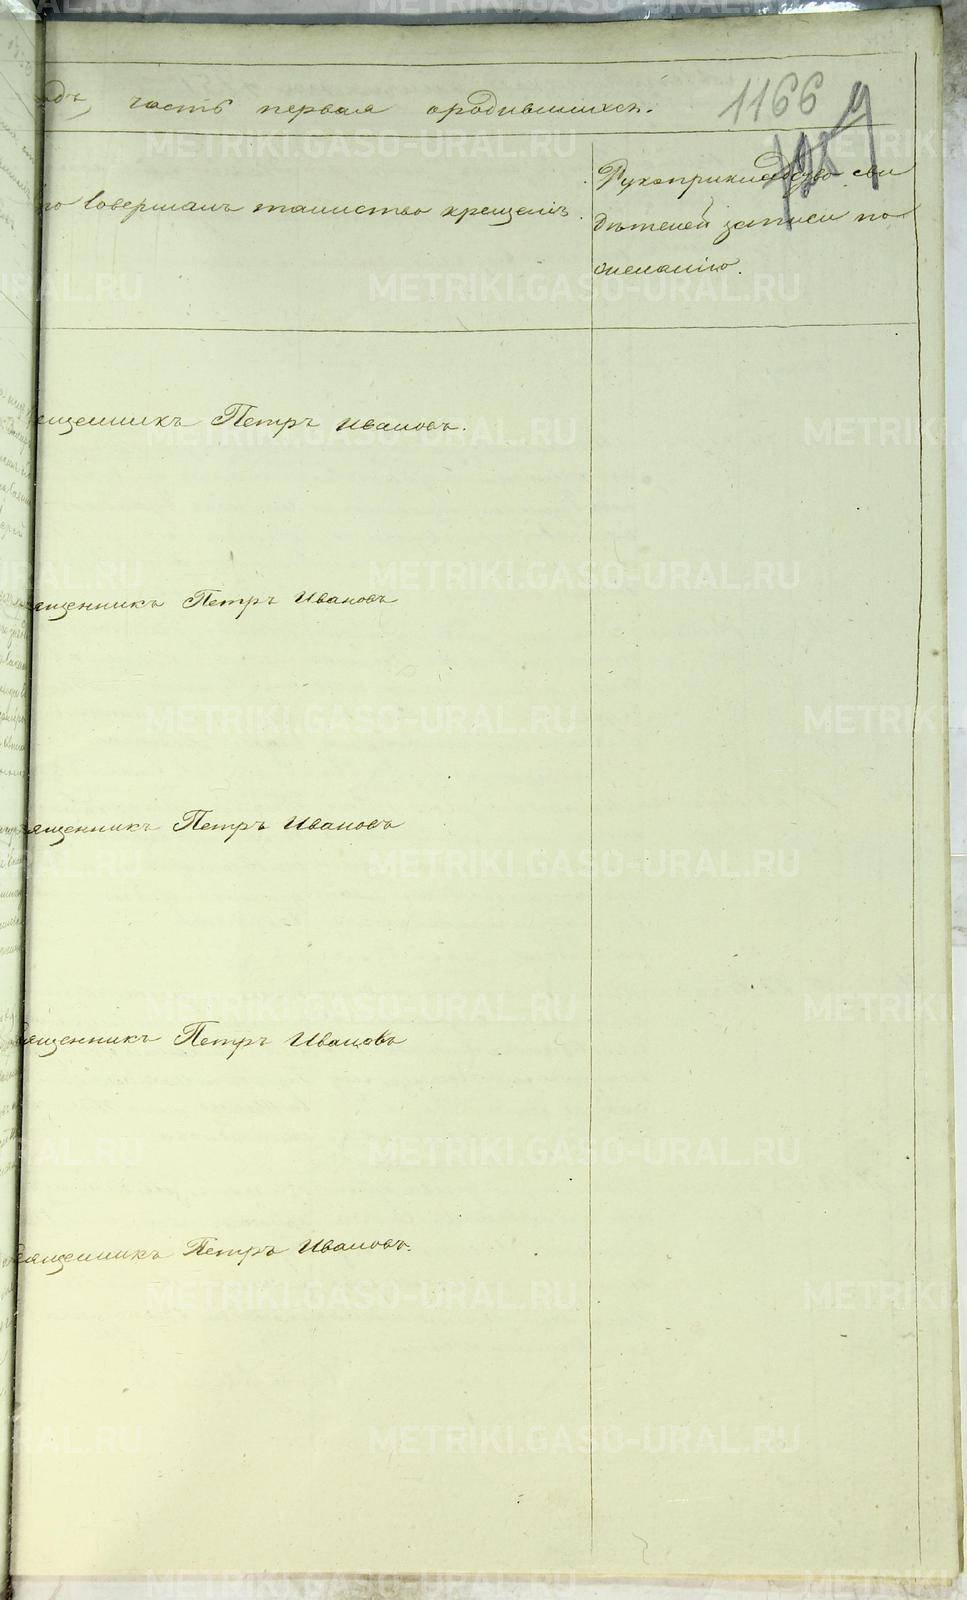 одъ, часть первая о родившихся.
1166
то совершалъ таинство крещенія.
Рукоприкладство сви
дѣтелей записи по
желанію.
ященникъ Петръ Ивановъ.
ященникъ Петръ Ивановъ
ященникъ Петръ Ивановъ
вященникъ Петръ Ивановъ
вященникъ Петръ Ивановъ.
METRIKI.GASO-URAL.RU